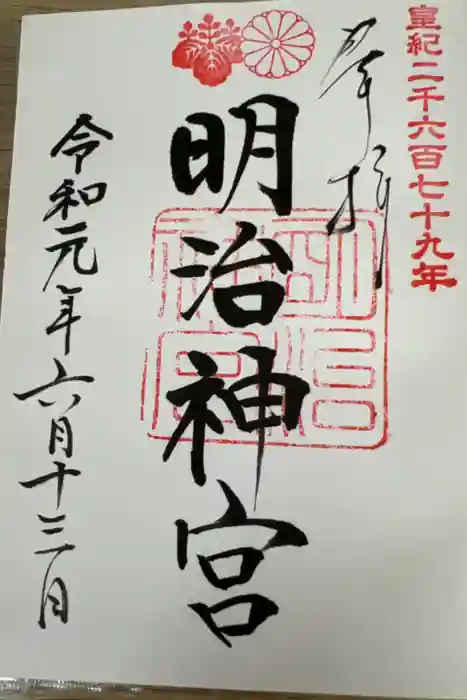 皇紀二千六百七十九年
奉拝
明治神宮
明治神宮
令和元年六月十三日